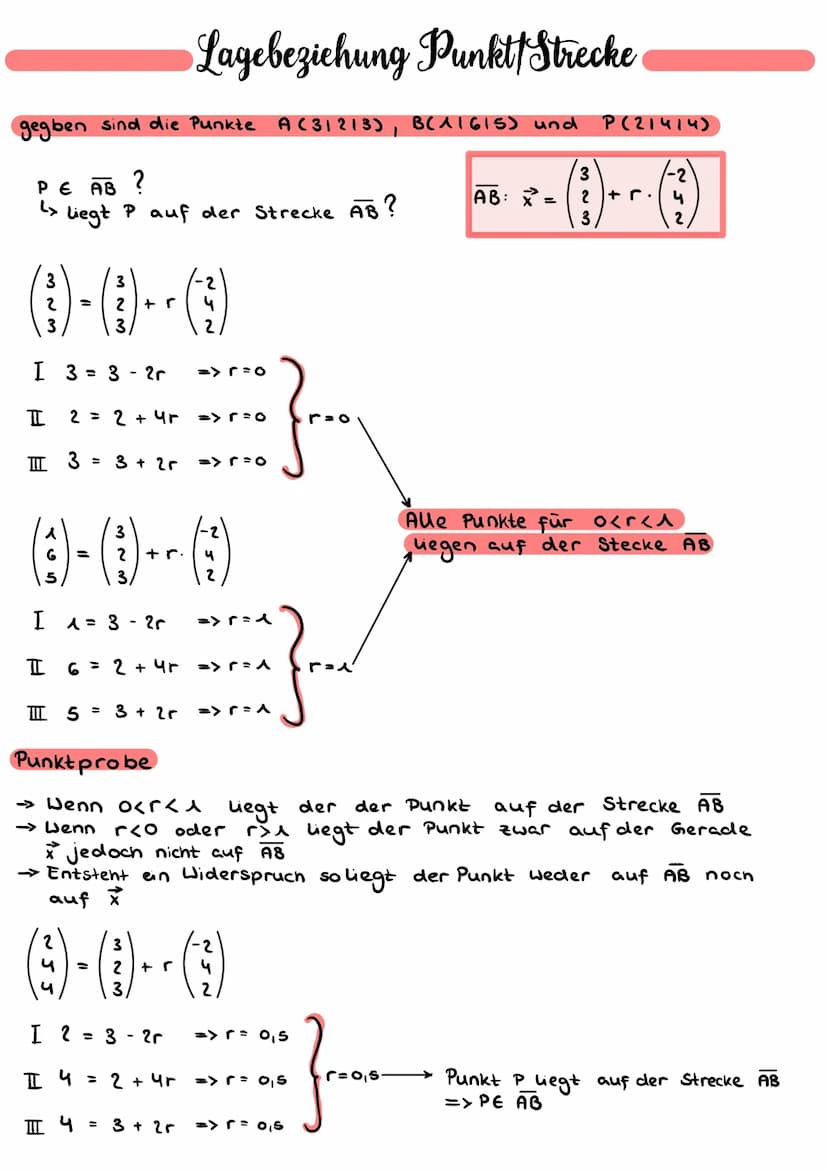 Lagebeziehung Punkt/Strecke
gegben sind die Punkte A(3|2|3), B(1|6|5) und P(2|4|4)
P ∈ A̅B̅ ?
↳ liegt P auf der Strecke A̅B̅ ?
A̅B̅: x⃗ = (3 2 3) + r · (-2 4 2)
(3 2 3) = (3 2 3) + r (-2 4 2)
I 3 = 3 - 2r => r=0
II 2 = 2 + 4r => r=0
III 3 = 3 + 2r => r=0
r=0
Alle Punkte für 0<r<1
liegen auf der Stecke A̅B̅
(1 6 5) = (3 2 3) + r · (-2 4 2)
I 1 = 3 - 2r => r=1
II 6 = 2 + 4r => r=1
III 5 = 3 + 2r => r=1
r=1
Punktprobe
→ Wenn 0<r<1 liegt der der Punkt auf der Strecke A̅B̅
→ Wenn r<0 oder r>1 liegt der Punkt zwar auf der Gerade
x⃗ jedoch nicht auf A̅B̅
→ Entsteht ein Widerspruch so liegt der Punkt weder auf A̅B̅ noch
auf x⃗
(2 4 4) = (3 2 3) + r (-2 4 2)
I 2 = 3 - 2r => r= 0,5
II 4 = 2 + 4r => r= 0,5
III 4 = 3 + 2r => r= 0,5
r=0,5 → Punkt P liegt auf der Strecke A̅B̅
=> P∈ A̅B̅